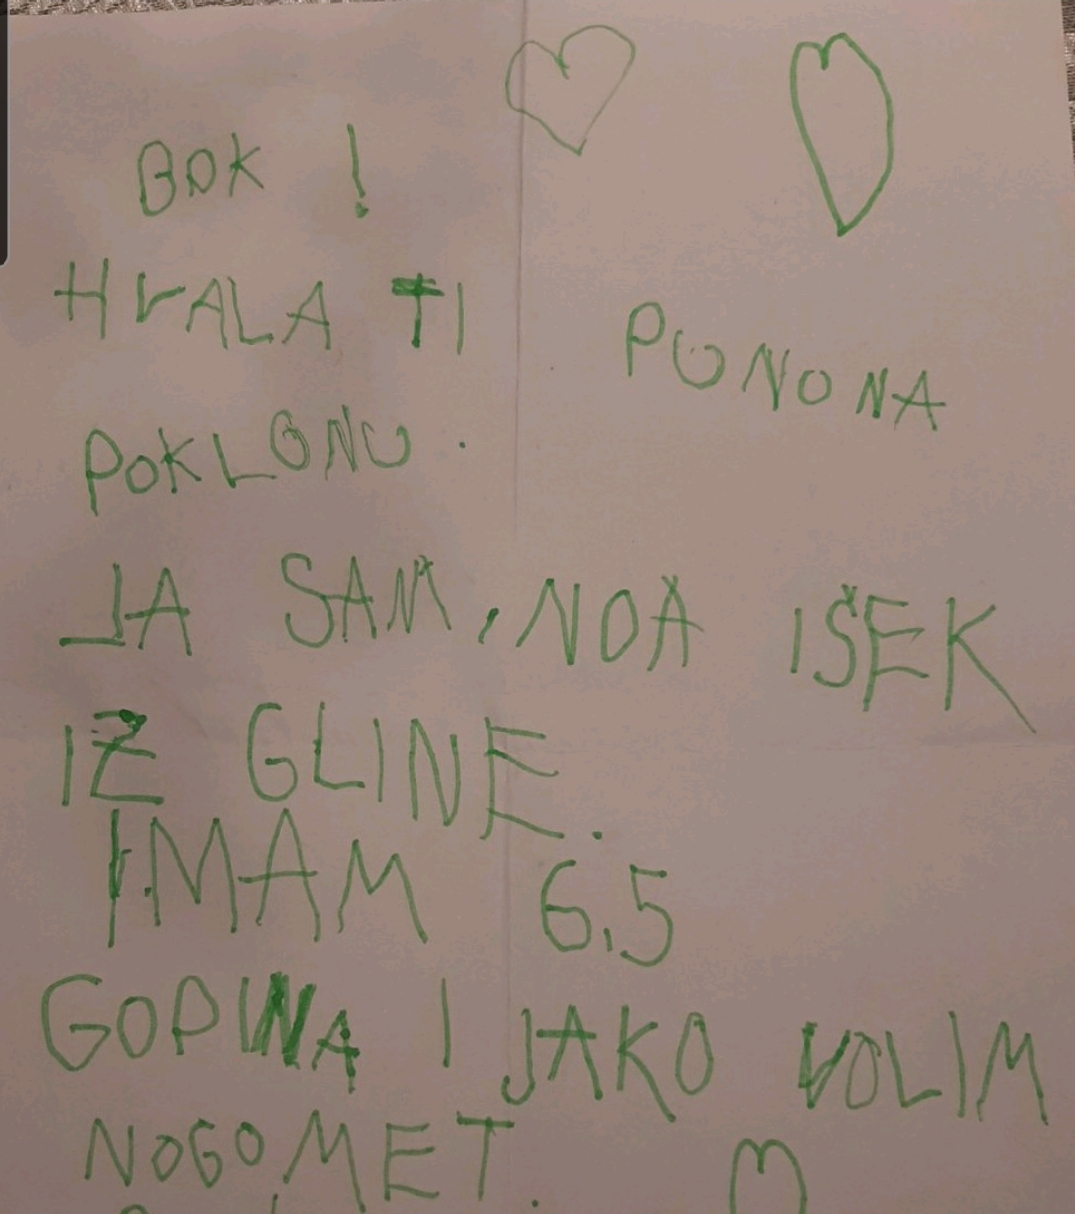 BOK !
HVALA TI PUNO NA
POKLONU.
JA SAM, NOA IŠEK
IZ GLINE.
IMAM 6,5
GODINA I JAKO VOLIM
NOGOMET.